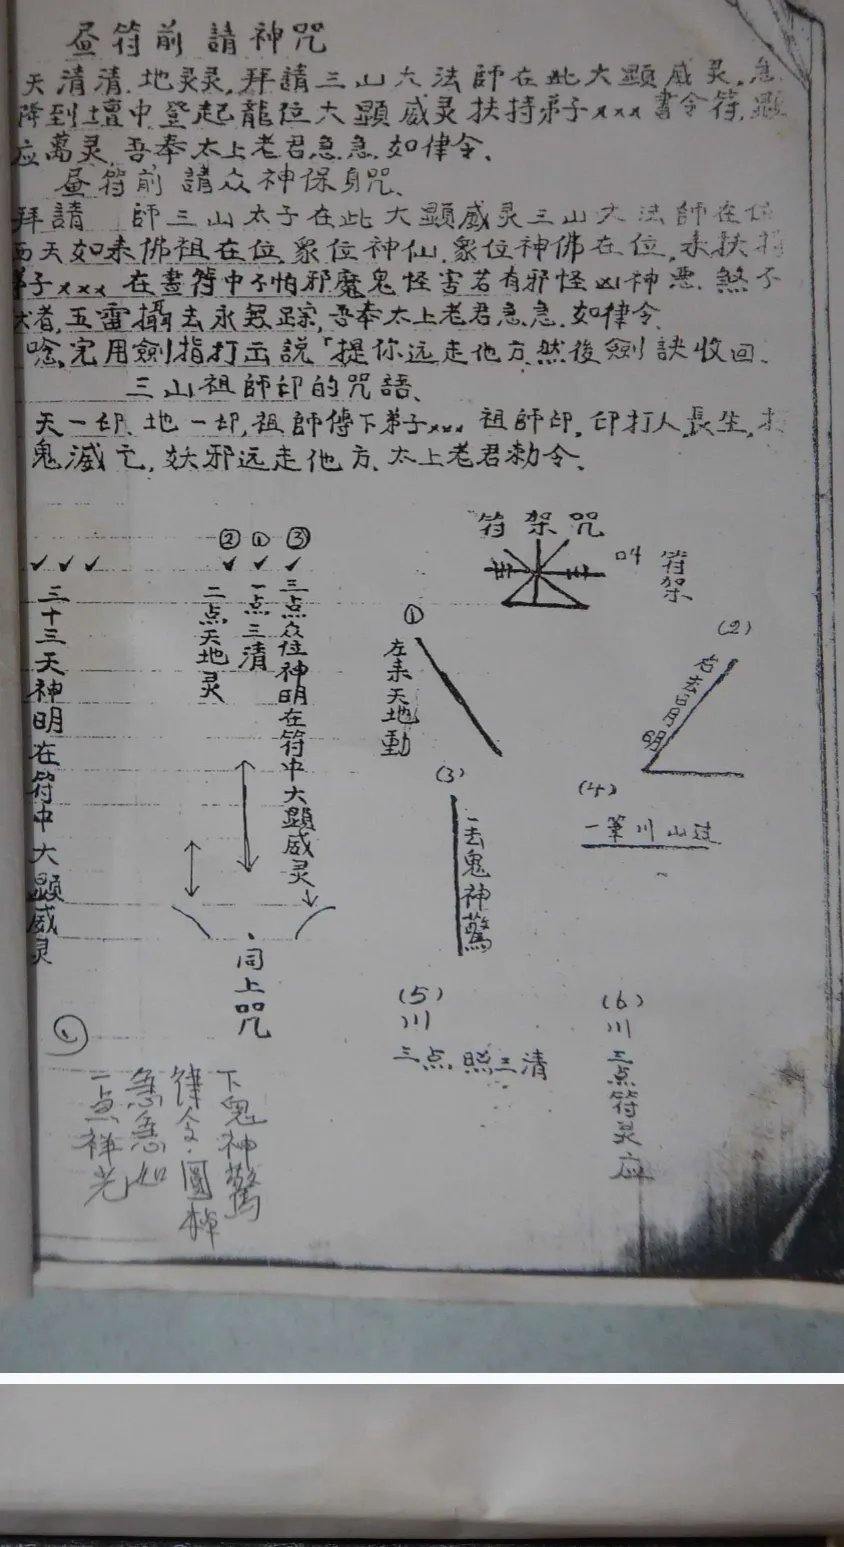 昼符前請神咒
天清清.地灵灵.拜請三山大法師在此大顯威灵.急
降到壇中登起龍位大顯威灵扶持弟子xxx書令符.顯
应萬灵.吾奉太上老君急急.如律令、
昼符前請众神保身咒、
拜請 師三山太子在此大顯威灵三山大法師在位
西天如来佛祖在位.眾位神仙.眾位神佛在位,来扶持
弟子xxx在畫符中不怕邪魔鬼怪害若有邪怪凶神悪.煞不
伏者,五雷攝去永無踪,吾奉太上老君急急.如律令.
唸完用劍指打出説「提你远走他方.然後劍訣收回.
三山祖師印的咒語、
天一印、地一印,祖師傳下弟子xxx祖師印,印打人.長生,打
鬼滅亡,妖邪远走他方.太上老君勅令、
符架咒
叫 符架
② ① ③
✓ ✓ ✓ ✓ ✓ ✓
三点众位神明在符中大顯威灵
一点三清
二点天地灵
三十三天神明在符中大顯威灵
同上咒
①
左来天地動
(2)
右去日月明
(3)
一丢鬼神驚
(4)
一筆川山过
(5)
川
三点.照三清
(6)
川
三点符灵应
下鬼神驚
律令.圖掉
急急如
一点祥光